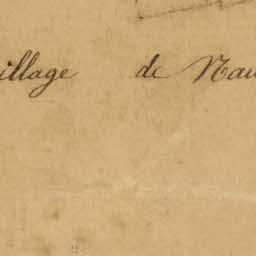 illage de Nau